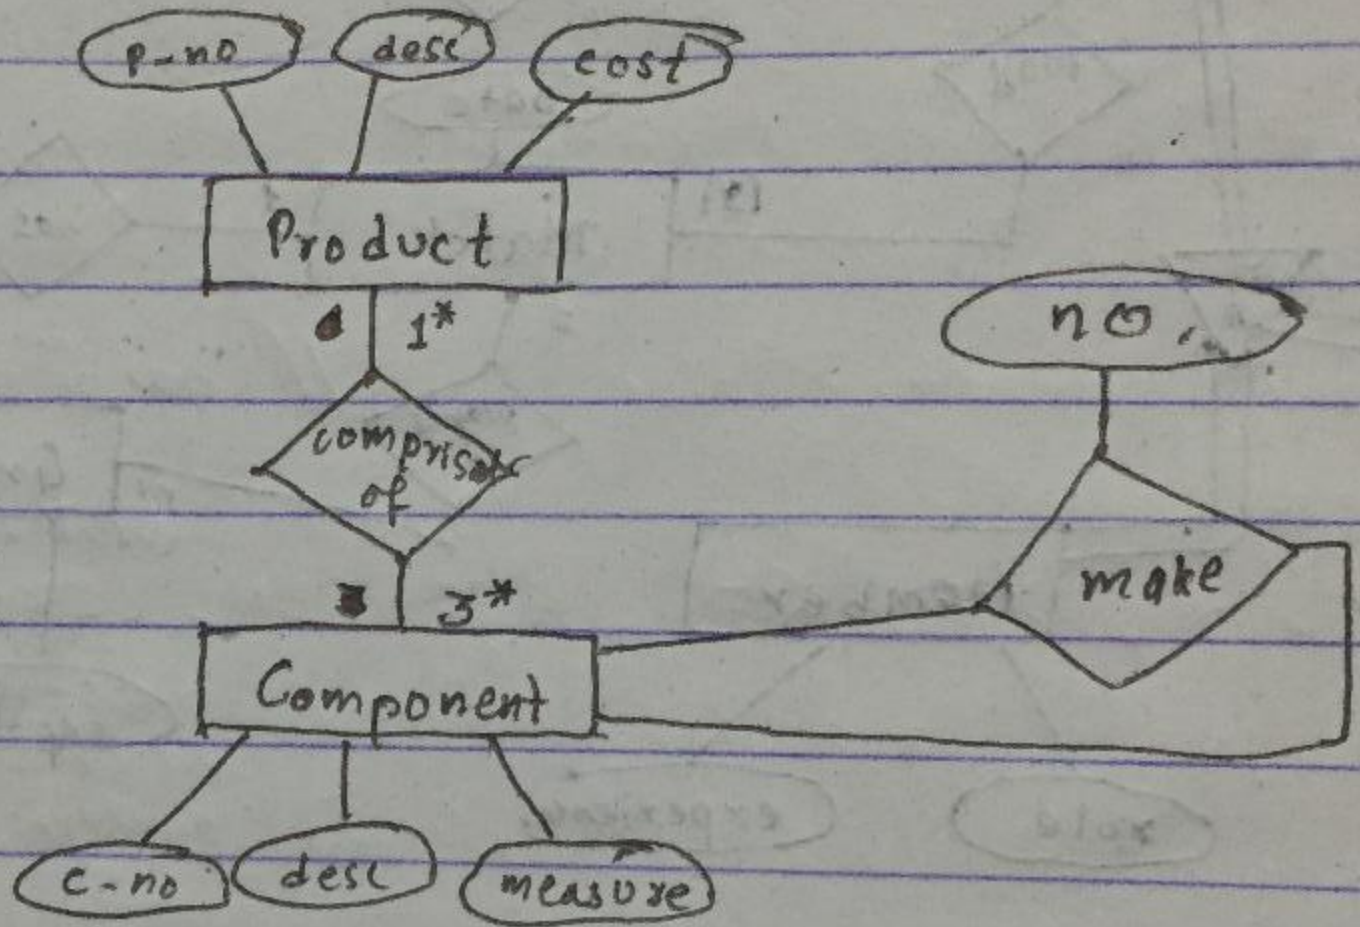 p-no
desc
cost
Product
1*
no.
comprises
of
make
3*
Component
c-no
desc
measure